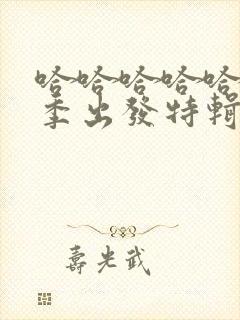 哈哈哈哈哈
季出發特輯
壽光武